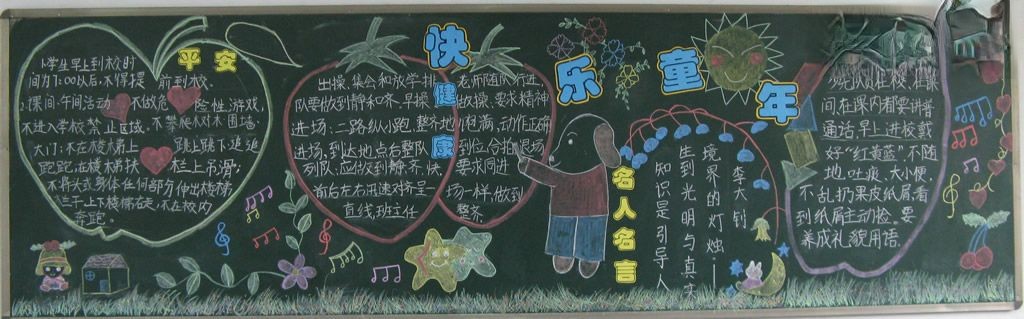 快乐童年
平安
1.小学生早上到校时
间为7:00以后,不得提 前到校。
2.课间、午间活动 不做危 险性游戏,
不进入学校禁止区域。不攀爬树木围墙、
大门;不在楼梯上 跳上跳下追逐
跑跑;在楼梯扶 栏上吊滑;
不将头或身体任何部分伸出楼梯
上下楼梯右走,不在校内
奔跑。
健康
出操,集会和放学排
队要做到静和齐。早操
进场:二路纵小跑,整齐地
进场,到达地点右整队
列队,应做到静、齐、快,
前后左右迅速对齐呈一
直线,班主任
老师随队行进
做操:要求精神
饱满,动作正确
到位合拍退场
要求同进
场一样,做到
整齐
名人名言
知识是引导人
生到光明与真实
境界的灯烛——
李大钊
间在课内都要讲普
通话早上进校戴
好“红黄蓝”不随
地吐痰、大小便,
不乱扔果皮纸屑看
到纸屑主动捡。要
养成礼貌用语。